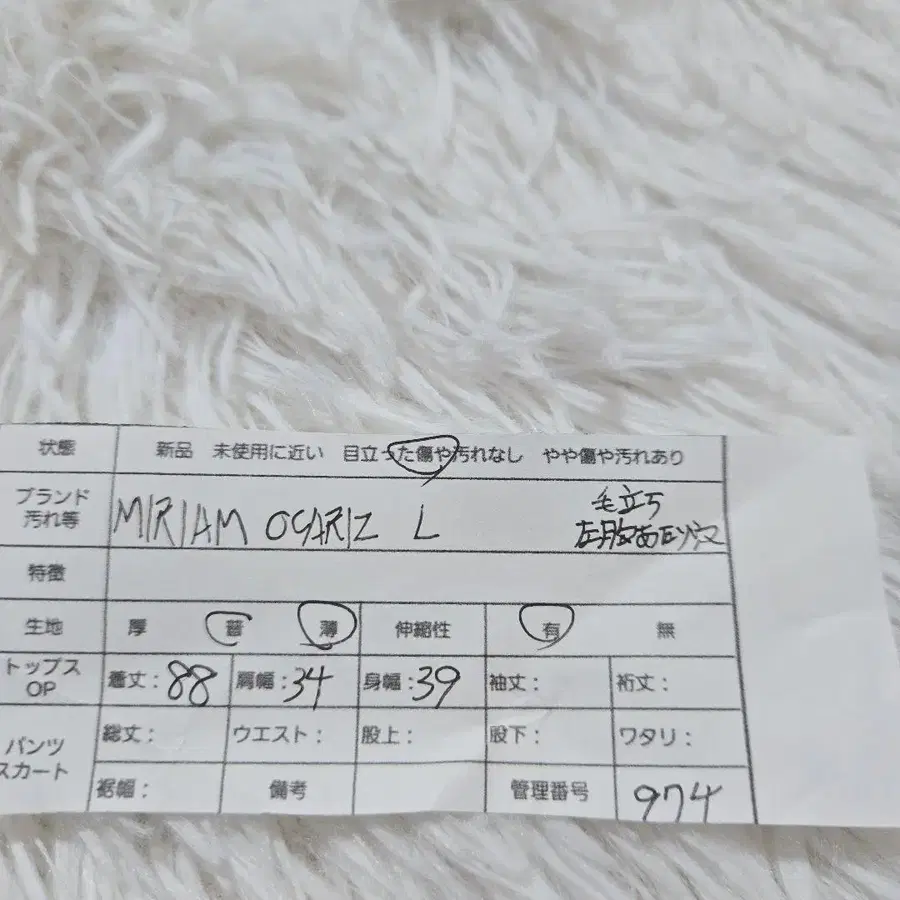 状態 新品 未使用に近い 目立った傷や汚れなし やや傷や汚れあり
ブランド 汚れ等 MIRIAM OCARIZ L 毛立ち
左胸あたり穴
特徴
生地 厚 普 薄 伸縮性 有 無
トップス OP 着丈：88 肩幅：34 身幅：39 袖丈： 裄丈：
パンツ スカート 総丈： ウエスト： 股上： 股下： ワタリ：
裾幅： 備考 管理番号 974